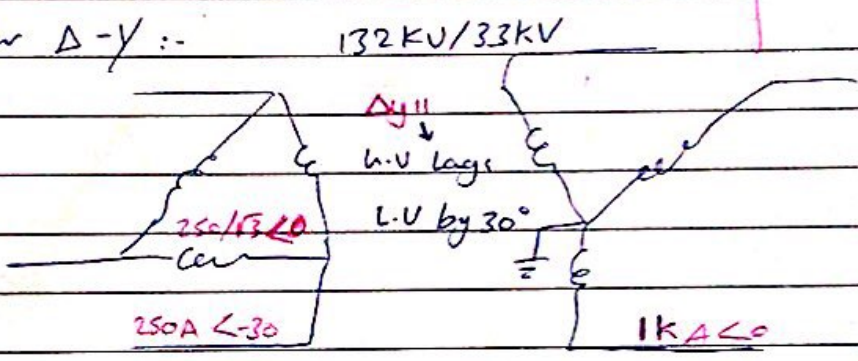 Δ-Y :- 132KV/33KV
Δy11
h.v lags
L.V by 30°
250/√3<0
250A <-30
1KA<0